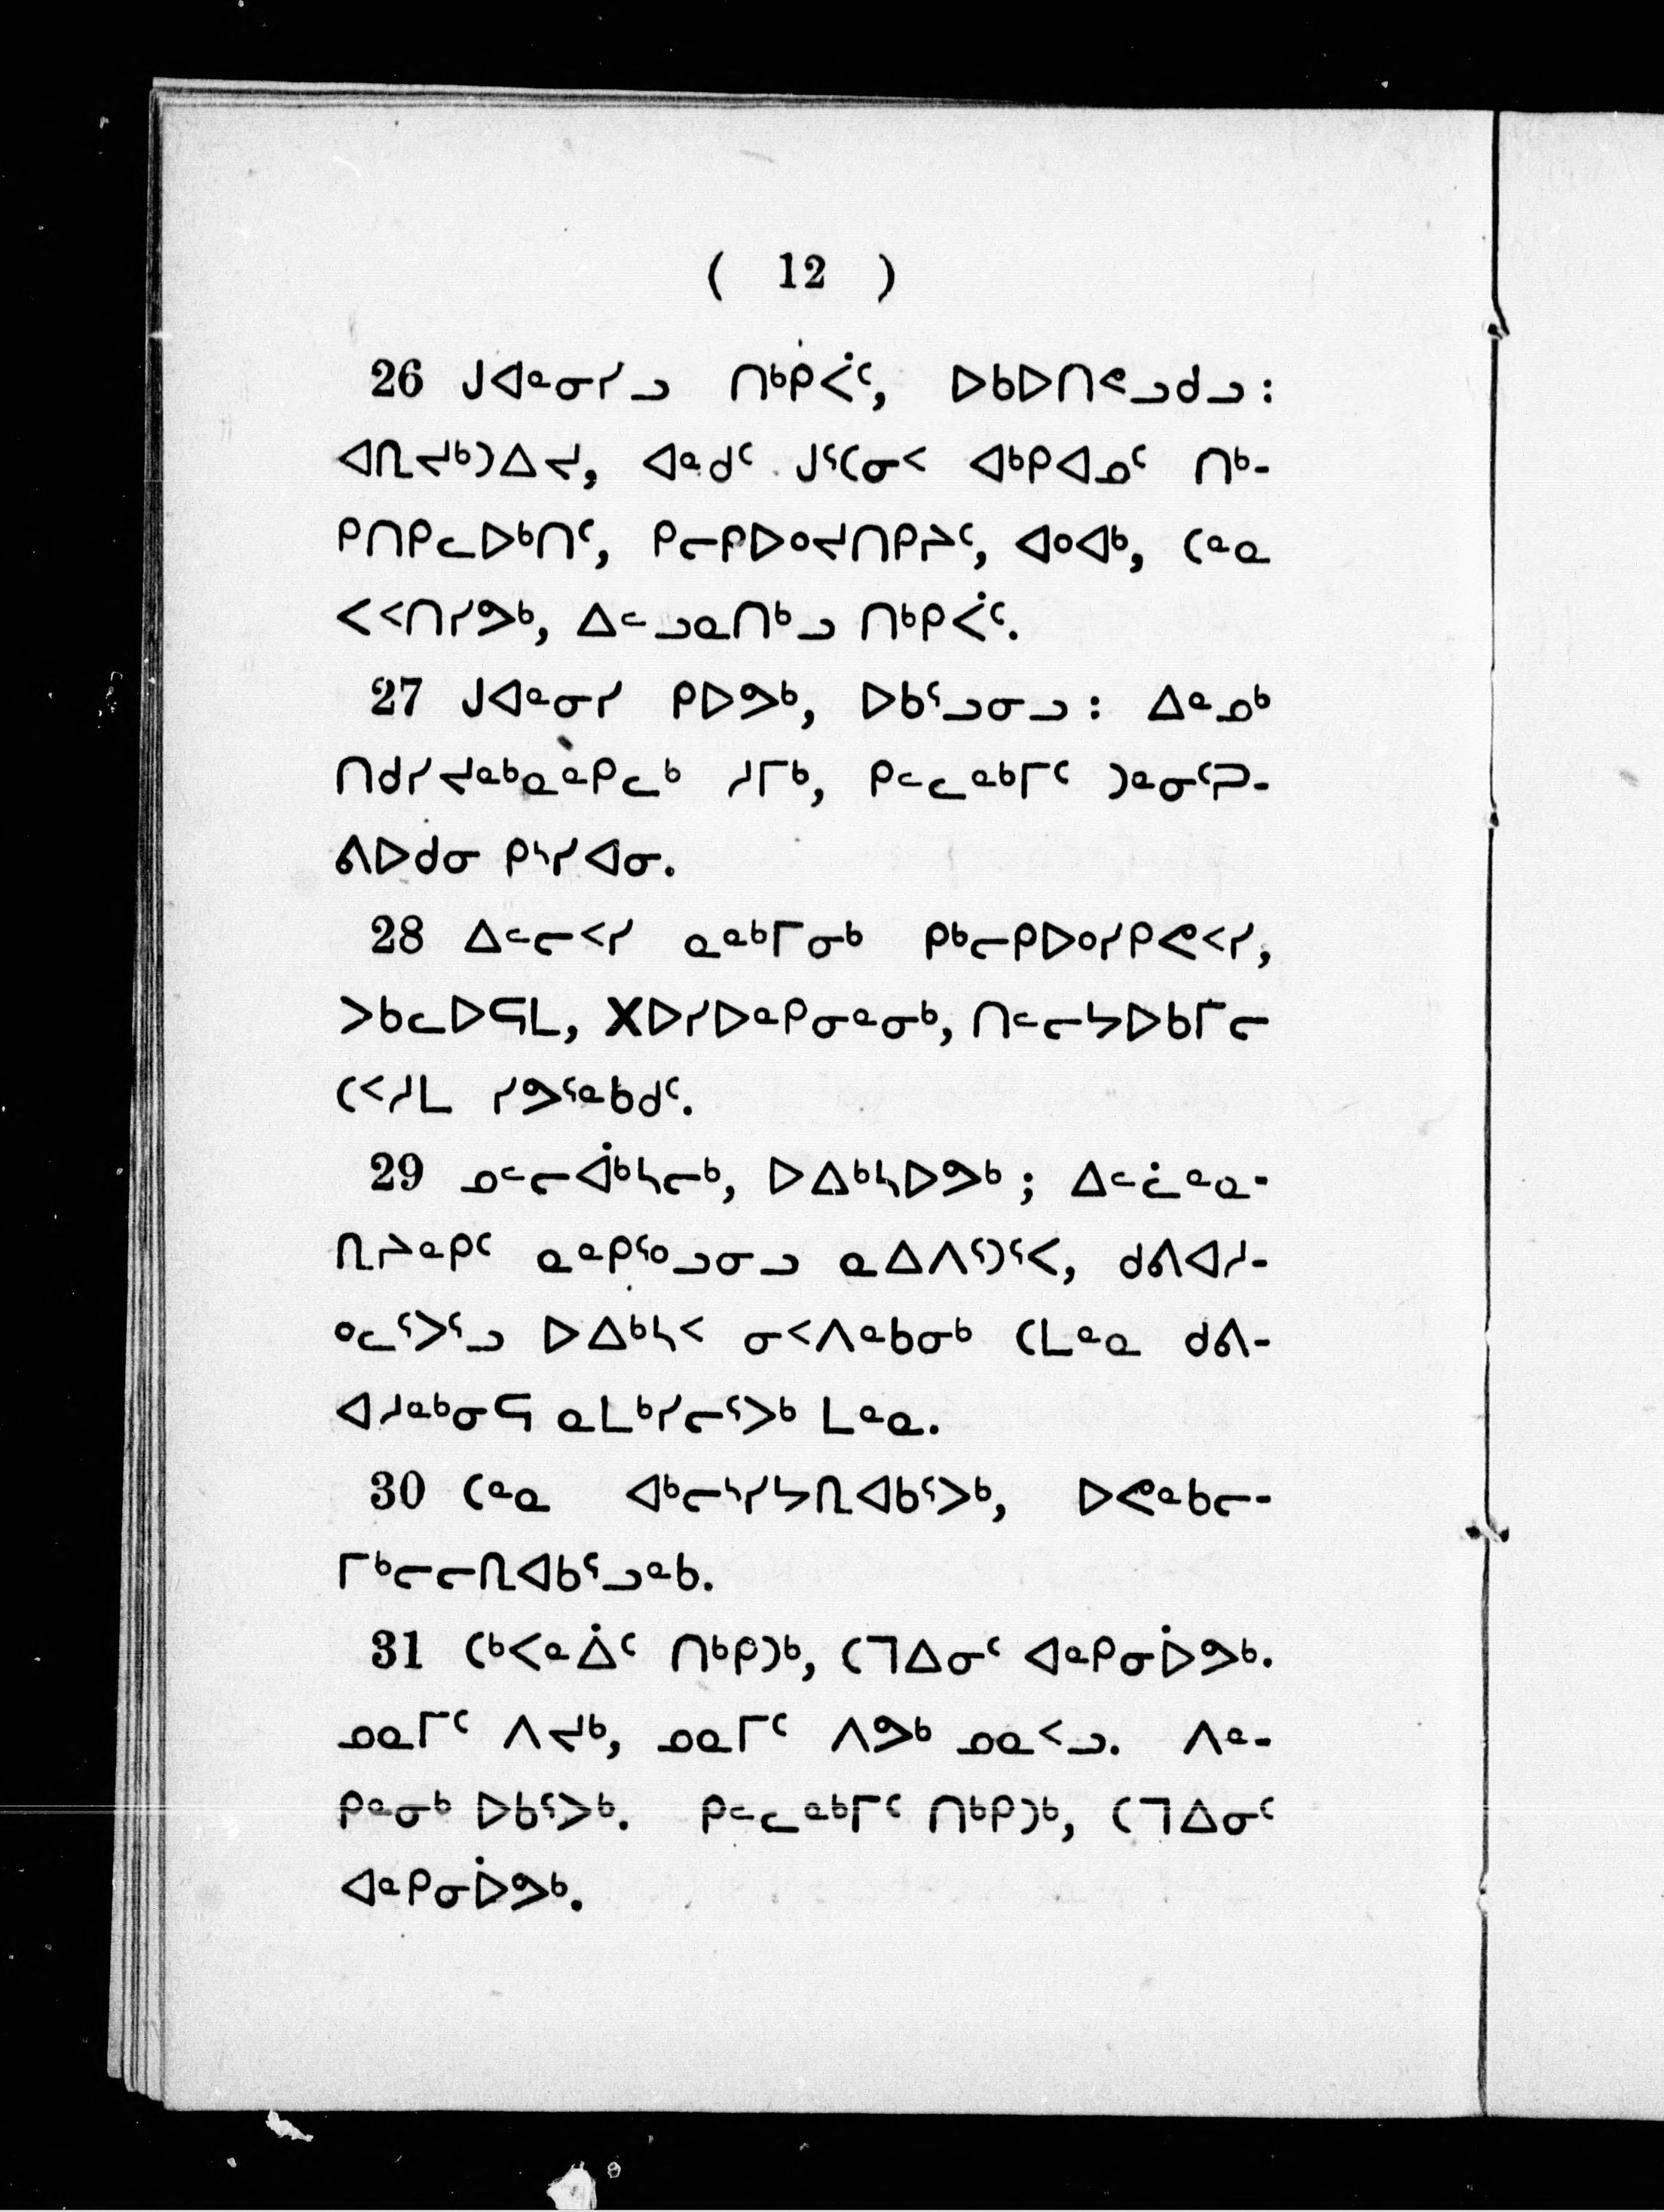 ( 12 )
26 ᒍᐊᓐᓂᓯᓗ ᑎᒃᑭᐹᑦ, ᐅᑲᐅᑎᕙᓗᑯᓗ :
ᐊᕆᔪᒃᑐᐃᔪ, ᐊᓇᑯᑦ ᒍᕐᑕᓂᑉ ᐊᒃᑭᐊᓄᑦ ᑎᒃ-
ᑭᑎᑭᓚᐅᒃᑎᑦ, ᑭᓕᑭᐅᐤᔪᑎᑭᔨᑦ, ᐊᐤᐊᒃ, ᑕᓐᓇ
ᐸᑉᑎᓯᕗᒃ, ᐃᓪᓗᓇᑎᒃᓗ ᑎᒃᑭᐹᑦ.
27 ᒍᐊᓐᓂᓯ ᑭᐅᕗᒃ, ᐅᑲᕐᓗᓂᓗ : ᐃᓐᓄᒃ
ᑎᑯᓯᔪᓐᒃᓇᓐᑭᓚᒃ ᓱᒥᒃ, ᑭᓪᓚᓐᒃᒥᑦ ᑐᓐᓂᑦᑐ-
ᕕᐅᑯᓂ ᑭᔅᓯᐊᓂ.
28 ᐃᓪᓕᑉᓯ ᓇᓐᒃᒥᓂᒃ ᑭᒃᓕᑭᐅᐤᓯᑭᕙᑉᓯ,
ᐳᑲᓚᐅᕋᒪ, ᕽᐅᓯᐅᓐᑭᓂᓐᓂᒃ, ᑎᓪᓕᔭᐅᑲᒥᓕ
ᑕᑉᓱᒪ ᓯᕗᕐᓐᑲᑯᑦ.
29 ᓄᓪᓕᐋᒃᓴᓕᒃ, ᐅᐃᒃᓴᐅᕗᒃ ; ᐃᓪᓛᓐᓇ-
ᕆᔨᓐᑭᑦ ᓇᓐᑭᕐᐤᓗᓂᓗ ᓇᐃᐱᕐᑐᕐᐸ, ᑯᕕᐊᓱ-
ᐤᓚᕐᐳᕐᓗ ᐅᐃᒃᓴᑉ ᓂᑉᐱᓐᑲᓂᒃ ᑕᒪᓐᓇ ᑯᕕ-
ᐊᓱᓐᒃᓂᕋ ᓇᒪᒃᓯᓕᕐᐳᒃ ᒪᓐᓇ.
30 ᑕᓐᓇ ᐊᒃᓕᔅᓯᔭᕆᐊᑲᕐᐳᒃ, ᐅᕙᓐᑲᓕ-
ᒥᒃᓕᓕᕆᐊᑲᕐᓗᓐᑲ.
31 ᑕᒃᐸᓐᐄᑦ ᑎᒃᑭᑐᒃ, ᑕᒣᐃᓂᑦ ᐊᓐᑭᓂᐆᕗᒃ.
ᓄᓇᒥᑦ ᐱᔪᒃ, ᓄᓇᒥᑦ ᐱᕗᒃ ᓄᓇᑉᓗ. ᐱᓐ-
ᑭᓐᓂᒃ ᐅᑲᕐᐳᒃ. ᑭᓪᓚᓐᒃᒥᑦ ᑎᒃᑭᑐᒃ, ᑕᒣᐃᓂᑦ
ᐊᓐᑭᓂᐆᕗᒃ.